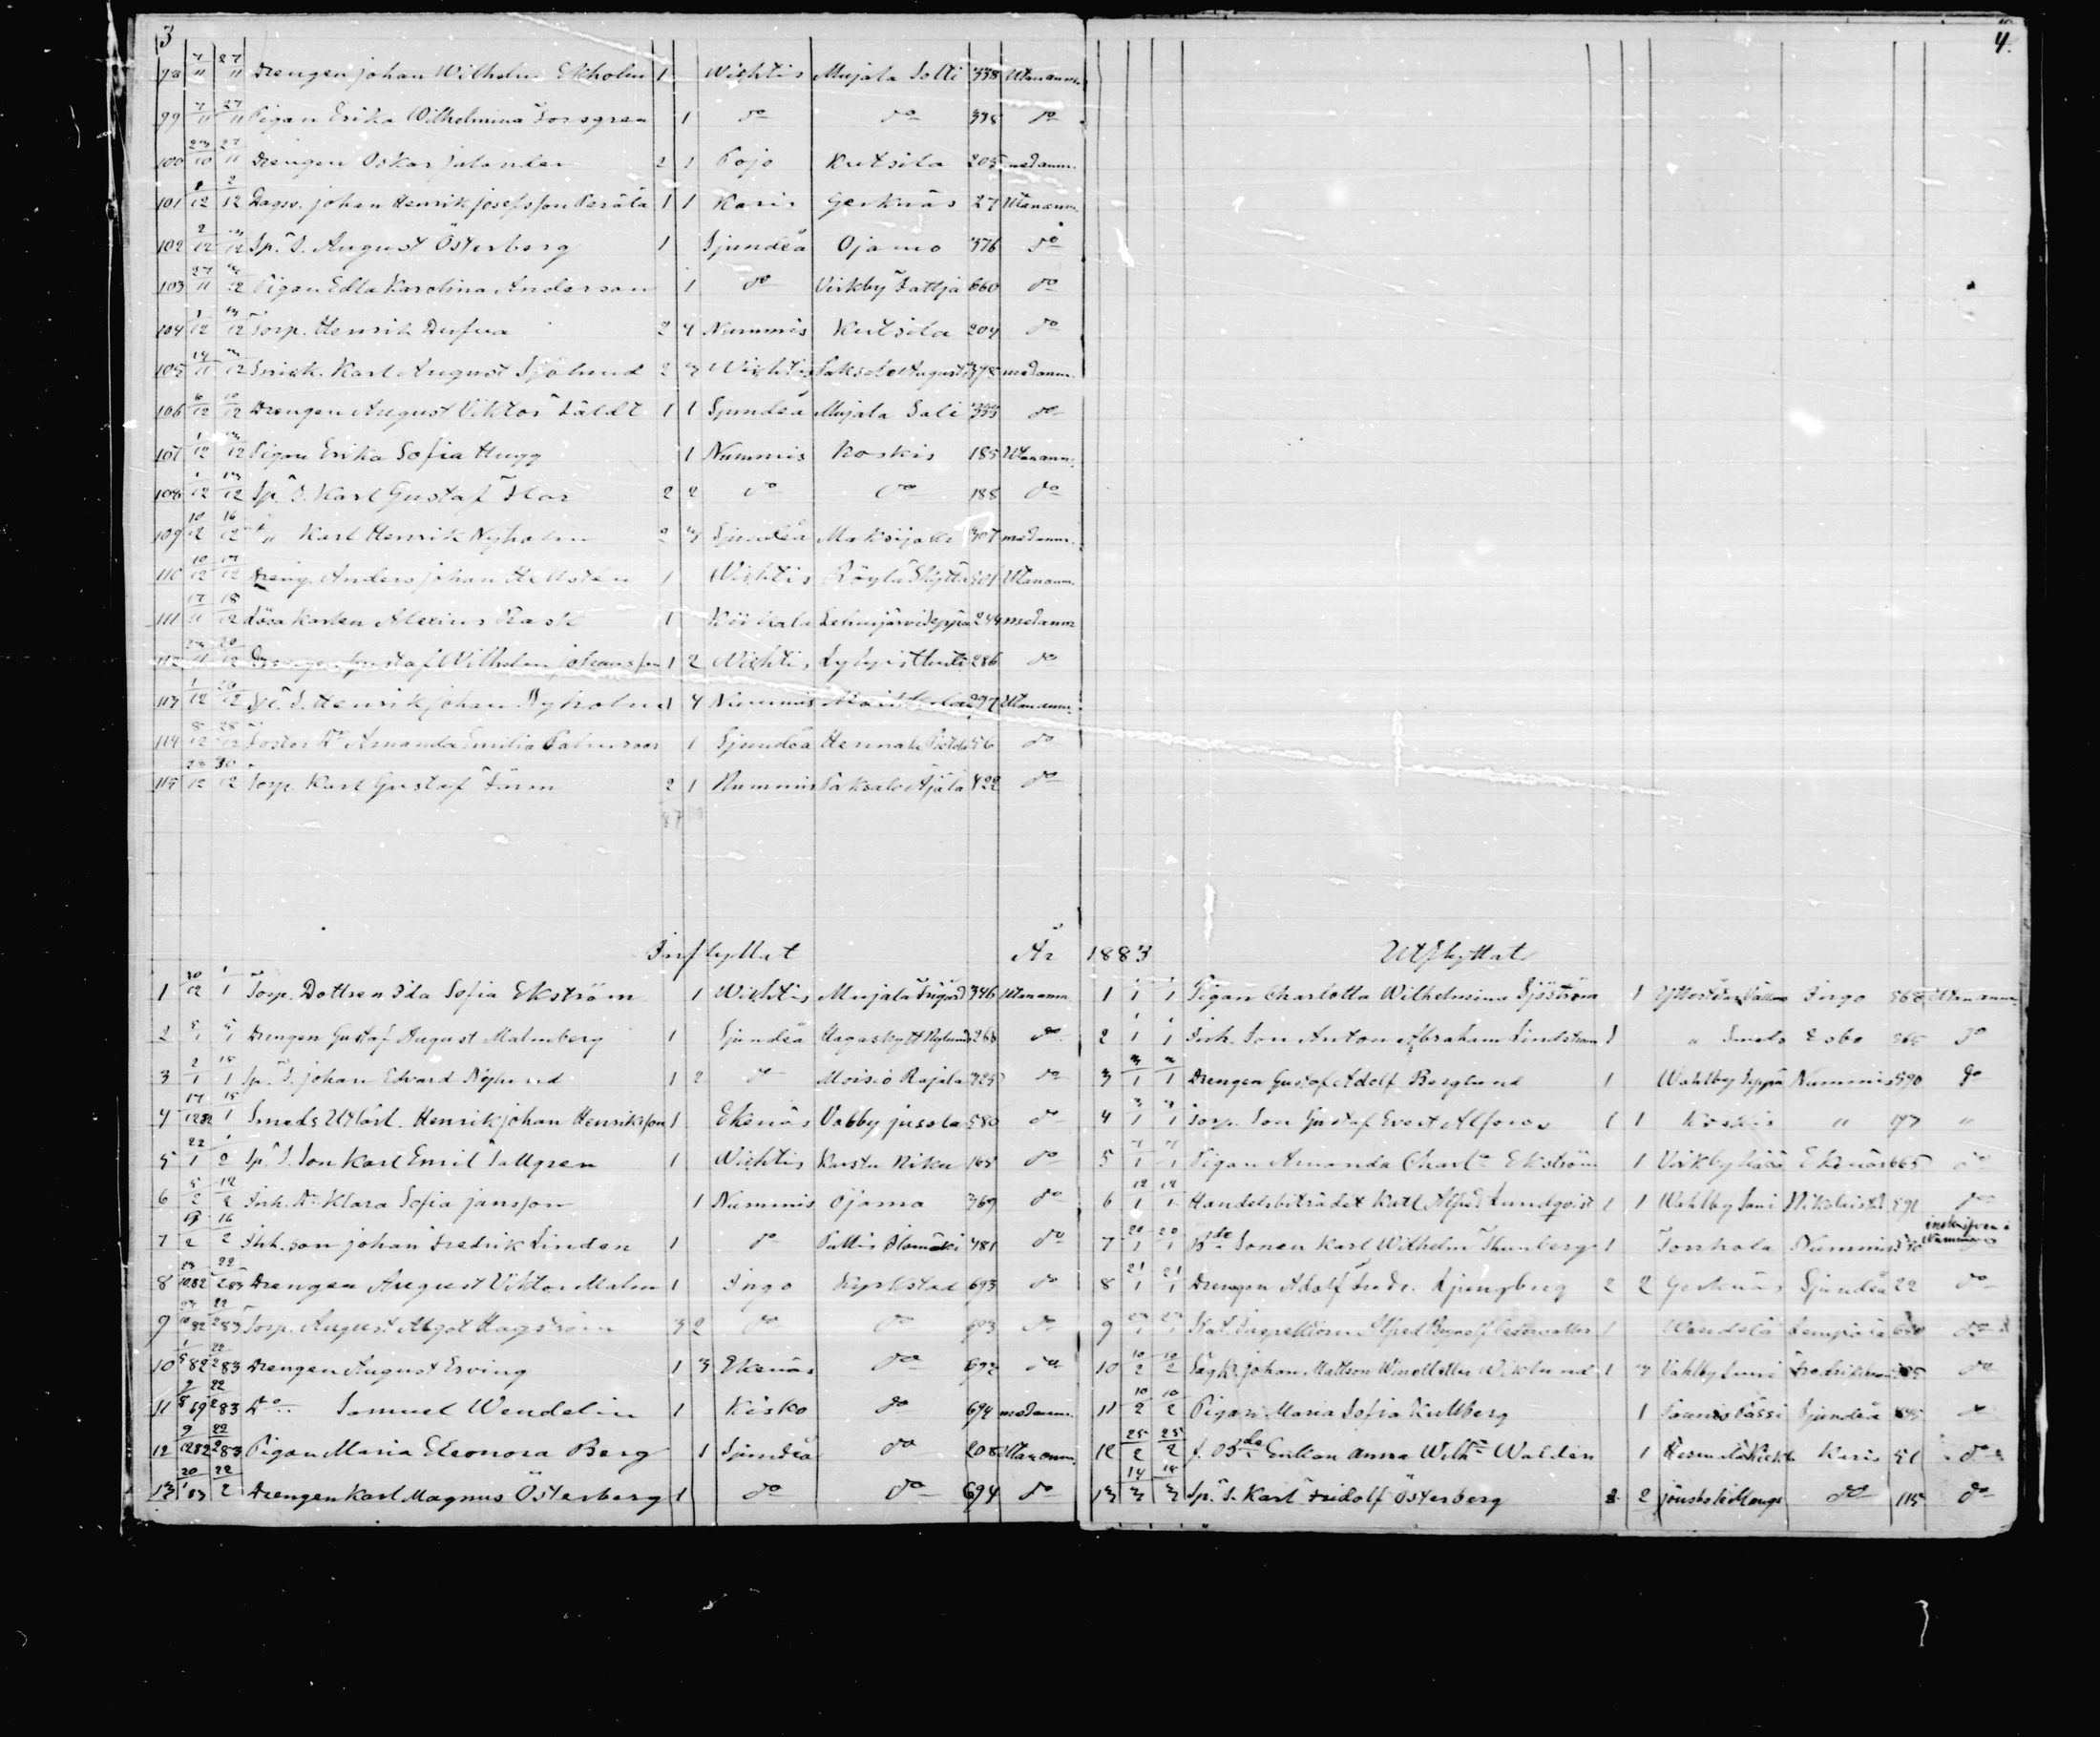 3
98 7/11 27/11 Drengen Johan Wilhelm Ekholm 1 Wichtis Mujala Solti 338 Utan anm.
99 7/11 27/11 Pigan Erika Wilhelmina Forsgren 1 do do 338 do
100 23/10 27/11 Drengen Oskar Jalander 2 1 Pojo Kutsila 205 med anm.
101 8/12 2/12 Dagsv. Johan Henrik Josefsson Perälä 1 1 Karis Gerknäs 27 Utan anm.
102 2/12 3/12 Sp. T. August Österberg 1 Sjundeå Ojamo 376 do
103 27/11 12 Pigan Edla Karolina Anderson 1 do Virkby Fattja 660 do
104 1/12 13/12 Torp. Henrik Dufva 2 4 Nummis Kutsila 204 do
105 14/11 12 Snick. Karl August Sjölund 2 3 Wichtis Paksalo August 378 med anm.
106 6/12 10/12 Drengen August Viktor Fäldt 1 1 Sjundeå Mujala Sali 333 do
107 1/12 13/12 Pigan Erika Sofia Hugg 1 Nummis Koskis 185 Utan anm.
108 1/12 13/12 Sp. T. Karl Gustaf Flor 2 2 do do 188 do
109 10/12 16/12 " Karl Henrik Nyholm 2 3 Sjundeå Maksjoki 307 med anm.
110 10/12 17/12 Dreng. Anders Johan Hellsten 1 Wichtis Röylä Skyttä 401 Utan anm.
111 17/11 18/12 Lösa Karlen Alexius Rask 1 Kiikala Lehmijärvi Seppä 244 med anm
112 23/11 20/12 Drengen Gustaf Wilhelm Johansson 1 2 Wichtis Lylyis 286 do
113 1/12 20/12 Henrik Johan Nyholm 1 4 Nummis 297 Utan anm.
114 8/12 28/12 Foster Dr Amanda Emilia Palmroos 1 Sjundeå Hermala 56 do
115 23/12 30/12 Torp. Karl Gustaf Färm 2 1 Nummis Paksalo Äjälä 422 do
Inflyttat År
1 30/12 1/1 Torp. Dottren Ida Sofia Ekström 1 Wichtis Mujala Frigård 346 Utan anm.
2 5/1 5/1 Drengen Gustaf August Malmberg 1 Sjundeå Hagaskytt Nylund 268 do
3 2/1 15/1 Sp. T. Johan Edvard Nylund 1 2 do Moisio Rajala 325 do
4 17/12 82 15/1 Smeds Utlärl. Henrik Johan Henriksson 1 Ekenäs Vabby jusola 580 do
5 22/1 1/2 Sp. T. Son Karl Emil Tallgren 1 Wichtis Kustu Niku 165 do
6 5/2 12/2 Inh. Dr Klara Sofia Jansson 1 Nummis Ojamo 369 do
7 13/2 16/2 Inh. son Johan Fredrik Linden 1 do Pullis Ilamäki 481 do
8 23/10 82 22/2 83 Drengen August Viktor Malm 1 Ingo Kyrkstad 693 do
9 23/10 82 22/2 83 Torp. August Algot Hagström 3 2 do do 693 do
10 1/5 82 22/2 83 Drengen August Erving 1 3 Ekenäs do 692 do
11 7/8 69 22/2 83 Do Samuel Wendelin 1 Kisko do 694 med anm.
12 9/12 82 22/2 83 Pigan Maria Eleonora Berg 1 Sjundeå do 208 Utan anm.
13 20/1 83 22/2 Drengen Karl Magnus Österberg 1 do do 694 do
4.
1883 Utflyttat
1 1/1 1/1 Pigan Charlotta Wilhelmina Sjöström 1 Ingo 568 Utan anm.
2 1/1 1/1 Inh. Son Anton Abraham Lindstram 1 " Smeds Esbo 365 do
3 3/1 3/1 Drengen Gustaf Adolf Berglund 1 Wahlby Seppä Nummis 590 do
4 3/1 3/1 Torp. Son Gustaf Evert Alfons 1 1 Koskis " 197 "
5 4/1 4/1 Pigan Amanda Charl:a Ekström 1 Virkby Kässä Ekenäs 665 do
6 12/1 12/1 Handelsbiträdet Karl Alfred Lundqvist 1 1 Wahlby Smi Nikolaistd 591 do
7 20/1 20/1 Bde Sonen Karl Wilhelm Thunberg 1 Torrhola Nummis inskrifven i Nummis
8 21/1 21/1 Drengen Adolf Fredr. Ljungberg 2 2 Gerknäs Sjundeå 22 do
9 23/1 23/1 Stat. Inspektoren Alfred 1 Wendelä Lempäälä 630 do
10 10/2 10/2 Sågk. Johan Mattson Wiklund 1 3 Vahlby Smi Fredrikshamn 585 do
11 10/2 10/2 Pigan Maria Sofia Kullberg 1 Sjundeå 445 do
12 25/2 25/2 f. Bde Enkan Anna Wilh:a Walden 1 Karis 51 do
13 14/3 14/3 Sp. T. Karl Fridolf Österberg 2 2 do 115 do